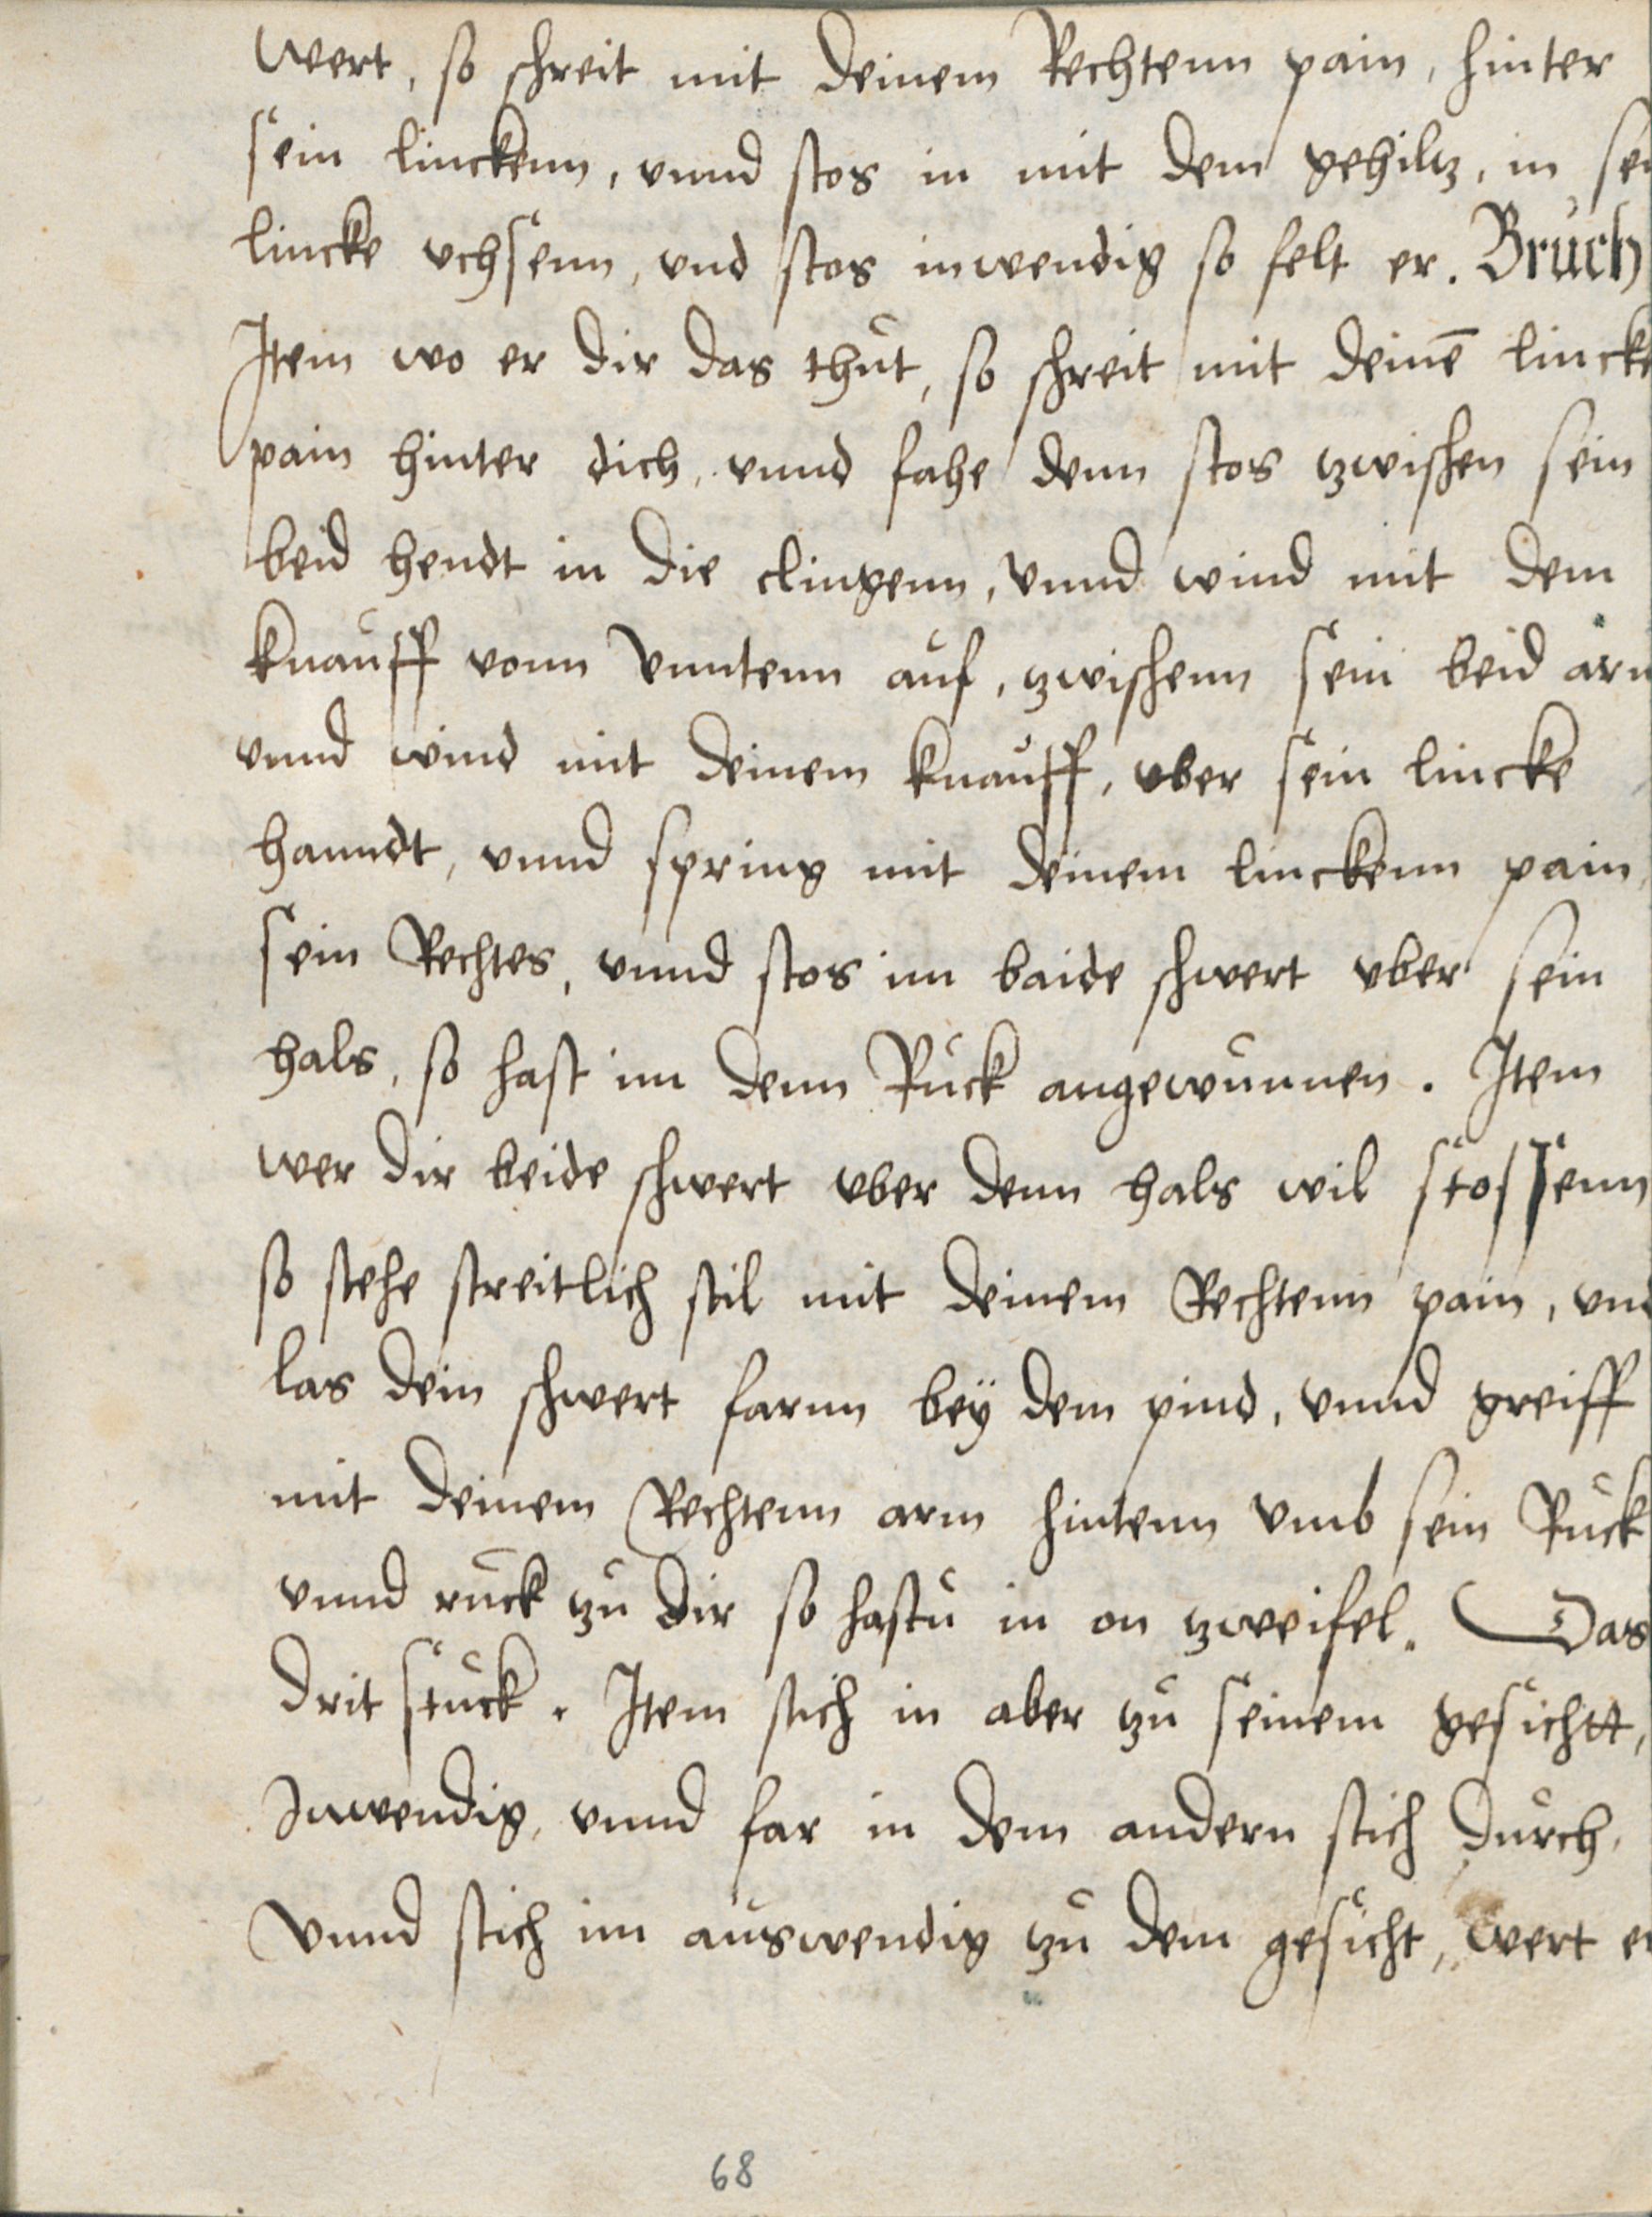 wert, so schreit mit deinem Rechtenn pain, hinter
sein linckenn, vnnd stos in mit dem gehiltz, in sei
lincke vchsenn, vnd stos inwendig so felt er. Bruch
Item wo er dir das thut, so schreit mit deinē lincke
pain hinter dich, vnnd fahe denn stos tzwischen sein
beid hendt in die clingenn, vnnd wind mit dem
knauff vonn vnntenn auf, tzwischenn sein beid arm
vnnd wind mit deinem knauff, vber sein lincke
hanndt, vnnd spring mit deinem linckenn pain,
sein Rechtes, vnnd stos im baide schwert vber sein
hals, so hast im denn Ruck angewunnen. Item
wer dir beide schwert vber denn hals wil stossenn
so stehe streitlich stil mit deinem Rechtenn pain, vnd
las dein schwert farnn bey dem pind, vnnd greiff
mit deinem Rechtenn arm hintenn vmb sein Ruck
vnnd ruck tzu dir so hastu in on tzweifel. Das
drit stuck. Item stich in aber tzu seinem gesichtt,
Inwendig, vnnd far in dem andern stich durch,
vnnd stich im auswendig tzu dem gesicht, wert er
68